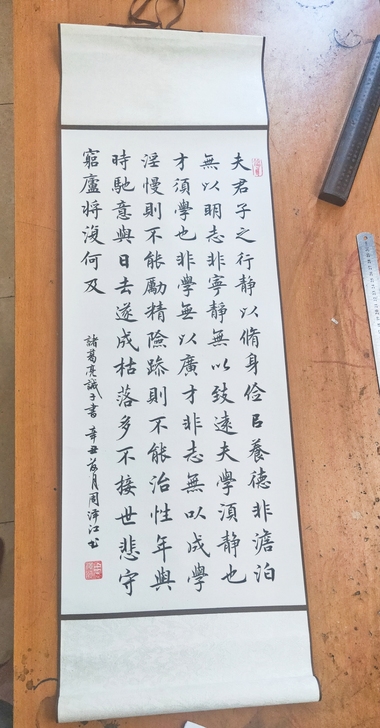 夫君子之行靜以脩身俭㠯養德非澹泊
無以明志非寧靜無以致遠夫學須靜也
才須學也非學無以廣才非志無以成學
淫慢則不能勵精險躁則不能治性年與
時馳意與日去遂成枯落多不接世悲守
窮廬将復何及
諸葛亮誡子書 辛丑月周泽江书